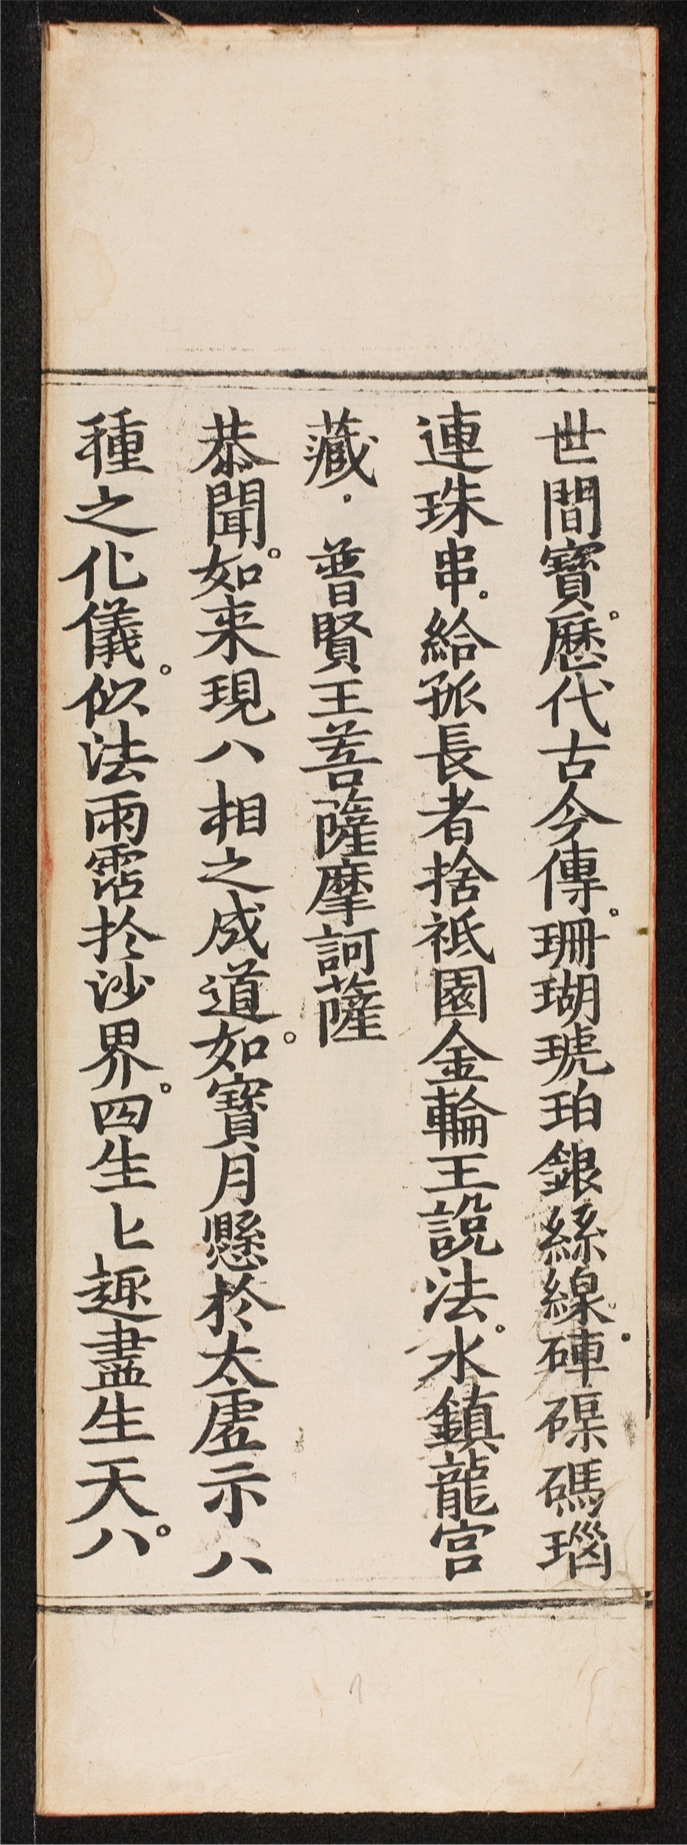 世間寶。歷代古今傳。珊瑚琥珀銀絲線。硨磲碼瑙
連珠串。給孤長者捨祇園金輪王說法。水鎮龍宮
藏。普賢王菩薩摩訶薩
恭聞。如来現八相之成道。如寶月懸於太虛示八
種之化儀。似法雨霑於沙界。四生匕趣盡生天。八